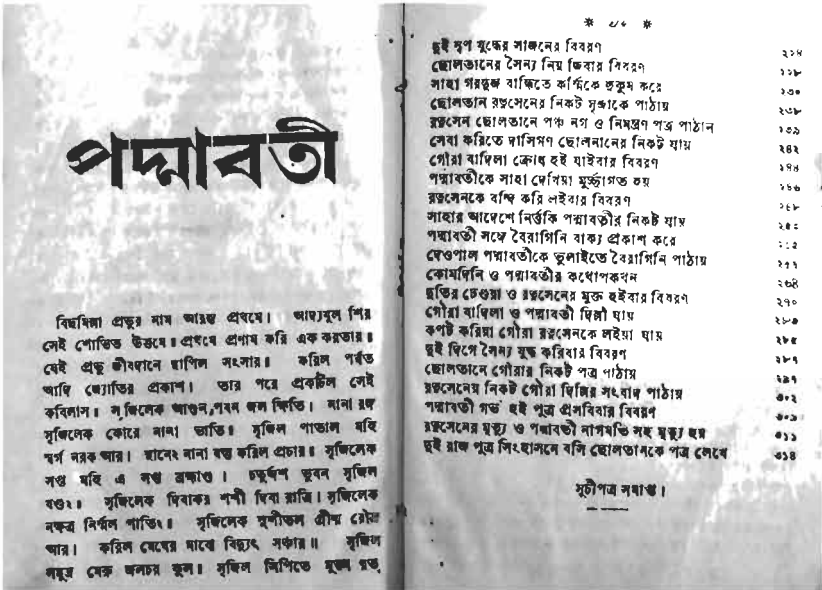 পদ্মাবতী
বিছমিল্লা প্রভুর নাম আরম্ভ প্রথমে। আদ্যমূল শির
সেই শোভিত উত্তমে॥ প্রথমে প্রণাম করি এক করতার॥
যেই প্রভু জীবদানে স্থাপিল সংসার॥ করিল পর্ব্বত
আদি জ্যোতির প্রকাশ। তার পরে প্রকটিল সেই
কবিলাস॥ সৃজিলেক আগুন পবন জল ক্ষিতি। নানা রঙ্গ
সৃজিলেক কোরে নানা ভাতি॥ সৃজিল পাতাল মহি
স্বর্গ নরক আর। স্থানেং নানা বস্তু করিল প্রচার॥ সৃজিলেক
সপ্ত মহি এ সপ্ত ব্রহ্মাণ্ড। চতুর্দ্দশ ভুবন সৃজিল
খণ্ডং॥ সৃজিলেক দিবাকর শশী দিবা রাত্রি। সৃজিলেক
নক্ষত্র নির্ম্মল পাতিং॥ সৃজিলেক সুশীতল গ্রীষ্ম রৌদ্র
আর। করিল মেঘের মাঝে বিদ্যুৎ সঞ্চার॥ সৃজিল
সমুদ্র মেরু জলচর কুল॥ সৃজিল সিপিতে মুক্তা রত্ন
দুই নৃপ যুদ্ধের সাজনের বিবরণ ২১৪
ছোলতানের সৈন্য নিয়ম দিবার বিবরণ
সাহা গরগুজ বান্ধিতে কর্ম্মিকে হুকুম করে ২৩০
ছোলতান রত্নসেনের নিকট সৃজাকে পাঠায় ২৩৮
রত্নসেন ছোলতানে পঞ্চ নগ ও নিমন্ত্রণ পত্র পাঠান ২৩৯
সেবা করিতে দাসিগণ ছোলনানের নিকট যায় ২৪২
গৌরা বাদিলা ক্রোধ হই যাইবার বিবরণ ২৪৪
পদ্মাবতীকে সাহা দেখিয়া মূর্চ্ছাগত হয় ২৪৬
রত্নসেনকে বন্দি করি লইবার বিবরণ
সাহার আদেশে নির্ত্তকি পদ্মাবতীর নিকট যায়
পদ্মাবতী সঙ্গে বৈরাগিনি বাক্য প্রকাশ করে
দেওপাল পদ্মাবতীকে ভুলাইতে বৈরাগিনি পাঠায় ২৫৭
কোমদিনি ও পদ্মাবতীর কথোপকথন ২৬৪
দুতির চেগুয়া ও রত্নসেনের মুক্ত হইবার বিবরণ ২৭০
গৌরা বাদিলা ও পদ্মাবতী দিল্লী যায়
কপট করিয়া গৌরা রত্নসেনকে লইয়া যায় ২৮৫
দুই দিগে সৈন্য যুদ্ধ করিবার বিবরণ ২৮৭
ছোলতানে গৌরার নিকট পত্র পাঠায় ২৯৭
রত্নসেনের নিকট গৌরা দিল্লির সংবাদ পাঠায় ৩০২
পদ্মাবতী গর্ভ হই পুত্র প্রসবিবার বিবরণ ৩০৯
রত্নসেনের মৃত্যু ও পদ্মাবতী নাগমতি সহ মৃত্যু হয় ৩১১
দুই রাজ পুত্র সিংহাসনে বসি ছোলতানকে পত্র লেখে ৩১৪
সূচীপত্র সমাপ্ত।